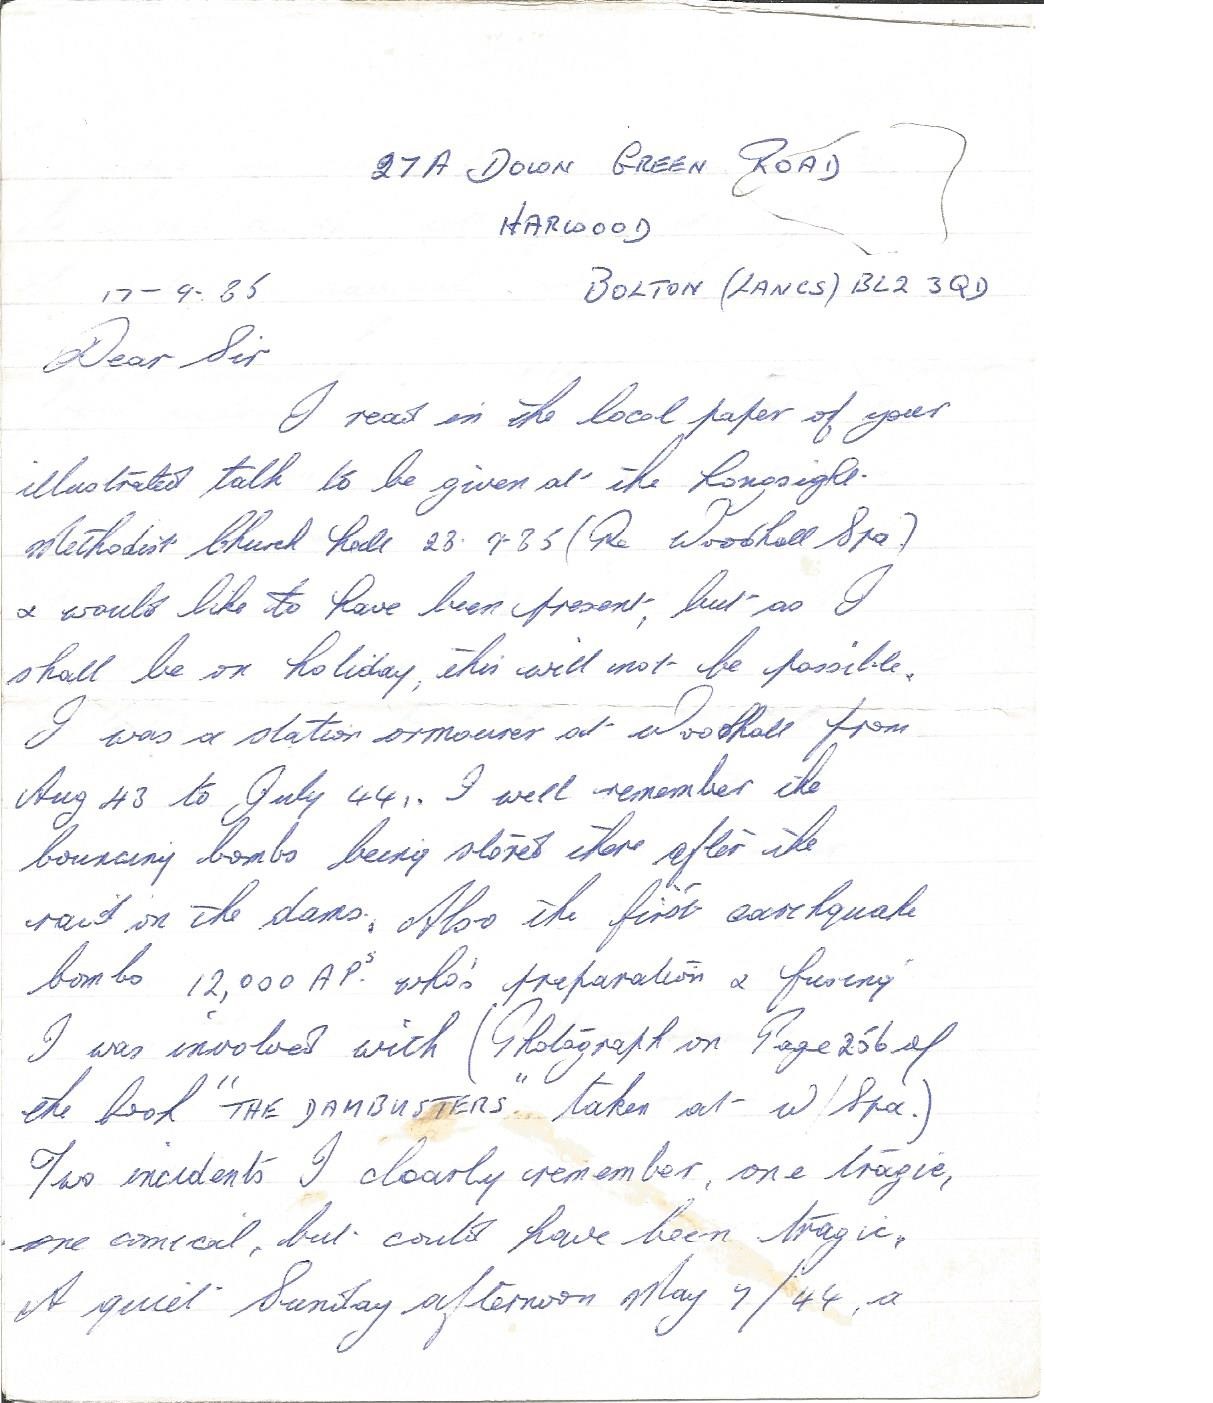 27A DOWN GREEN ROAD
HARWOOD
BOLTON (LANCS) BL2 3QD
17-9-85
Dear Sir
I read in the local paper of your
illustrated talk to be given at the Longsight
Methodist Church Hall 28-9-85 (Re Woodhall Spa)
& would like to have been present, but as I
shall be on holiday, this will not be possible.
I was a station armourer at Woodhall from
Aug 43 to July 44. I well remember the
bouncing bombs being stored there after the
raid on the dams. Also the first earthquake
bombs 12,000 APs who's preparation & fusing
I was involved with (Photograph on Page 256 of
the book "THE DAMBUSTERS" taken at W/Spa.)
Two incidents I clearly remember, one tragic,
one comical, but could have been tragic.
A quiet Sunday afternoon May 7/44, a